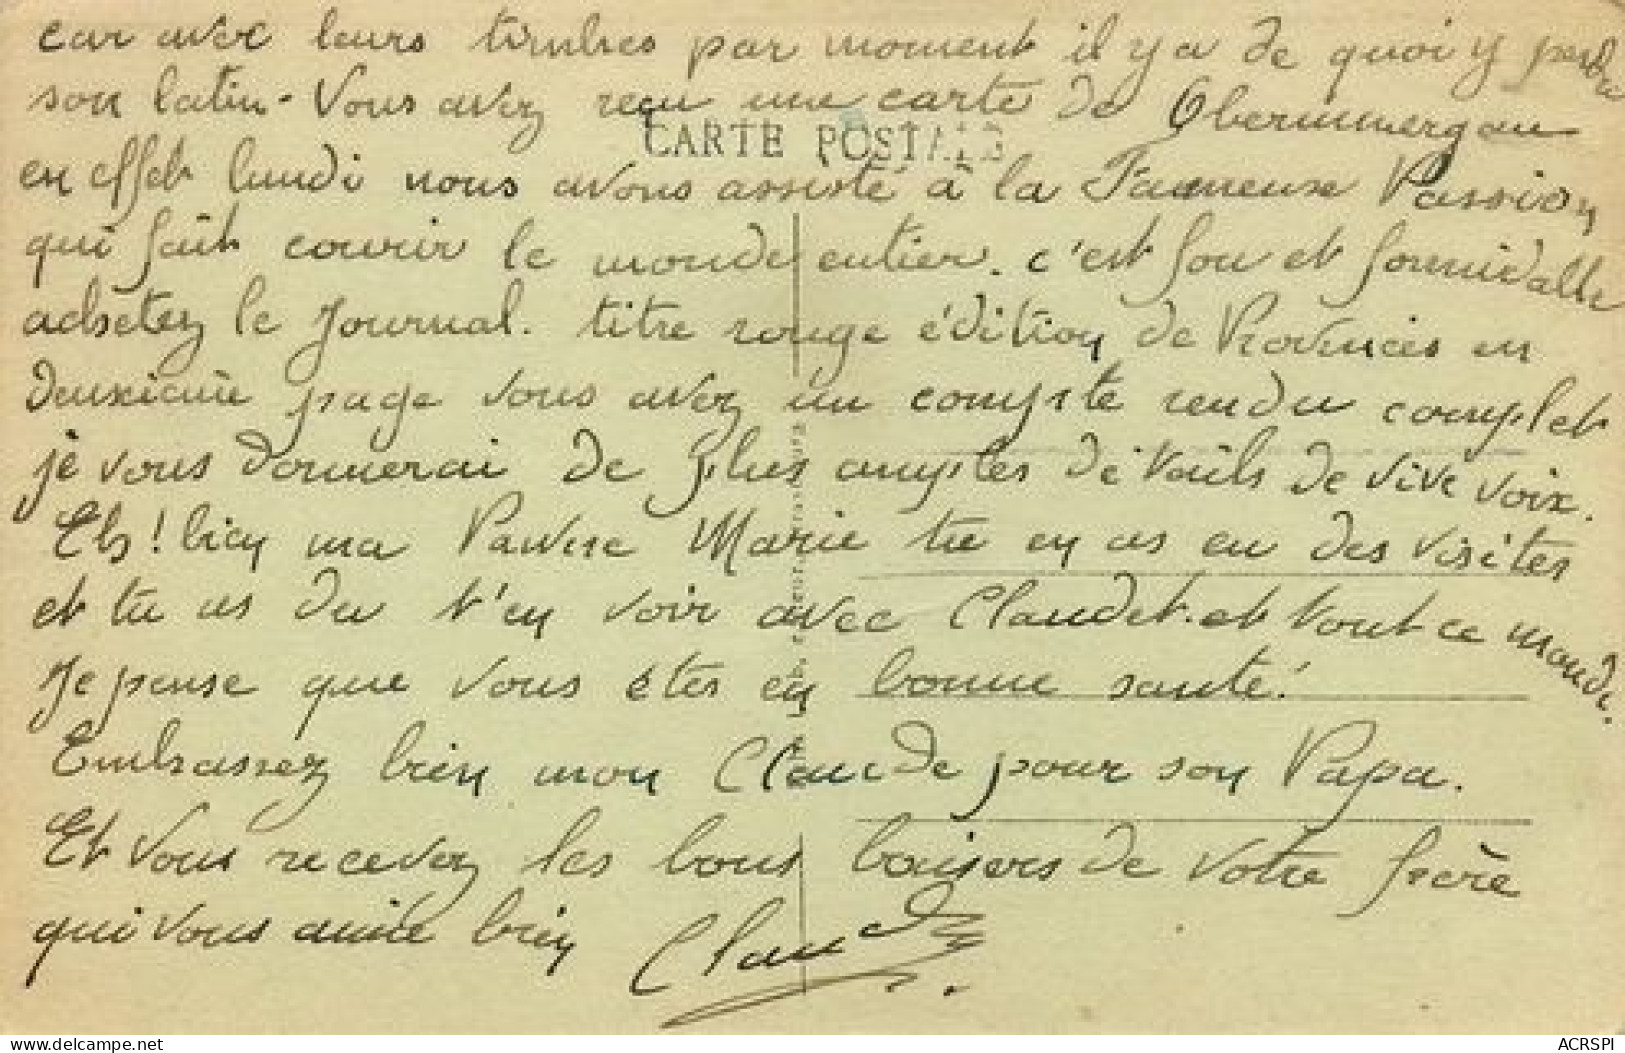 car avec leurs timbres par moment il y a de quoi y perdre
son latin - Vous avez reçu une carte de Oberammergau
CARTE POSTALE
en effet lundi nous avons assisté à la Fameuse Passion
qui fait courir le monde entier. c'est fou et formidable
achetez le Journal. titre rouge édition de Provinces en
deuxième page vous avez un compte rendu complet
je vous donnerai de plus amples détails de vive voix.
Eh! bien ma Pauvre Marie tu en as eu des visites
et tu as du t'en voir avec Claudet. et tout ce monde.
Je pense que vous êtes en bonne santé!
Embrassez bien mon Claude pour son Papa.
Et Vous recevez les bons baisers de Votre frère
qui Vous aime bien Claude
delcampe.net
ACRSPI